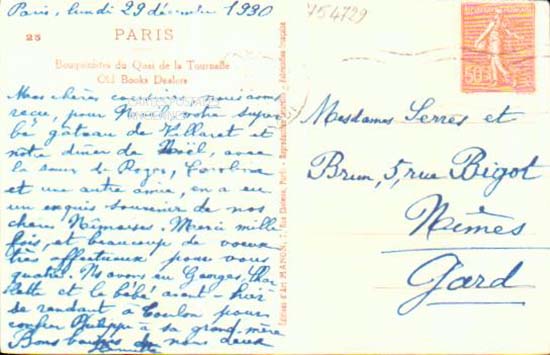 Paris, lundi 29 décembre 1930
754729
25 PARIS
Bouquinistes du Quai de la Tournelle
Old Books Dealers
Mes chères cousines, nous avons
reçu, pour Noël, votre super
be gâteau de Villaret et
notre dîner de Noël, avec
la sœur de Roger, Caroline
et une autre amie, en a eu
un exquis souvenir de nos
chères Nîmoises. Merci mille
fois, et beaucoup de vœux
très affectueux pour vous
quatre. Ns avons eu Georges, Char
lotte et le bébé avant-hier
se rendant à Toulon pour
Philippe à sa grand-mère
Bons baisers de nous deux
Mesdames Serres et
Brun, 5, rue Bigot
Nîmes
Gard
50